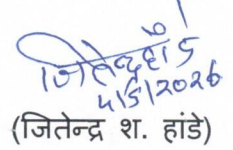 जितेन्द्र हांडे
4/5/2026
(जितेन्द्र श. हांडे)